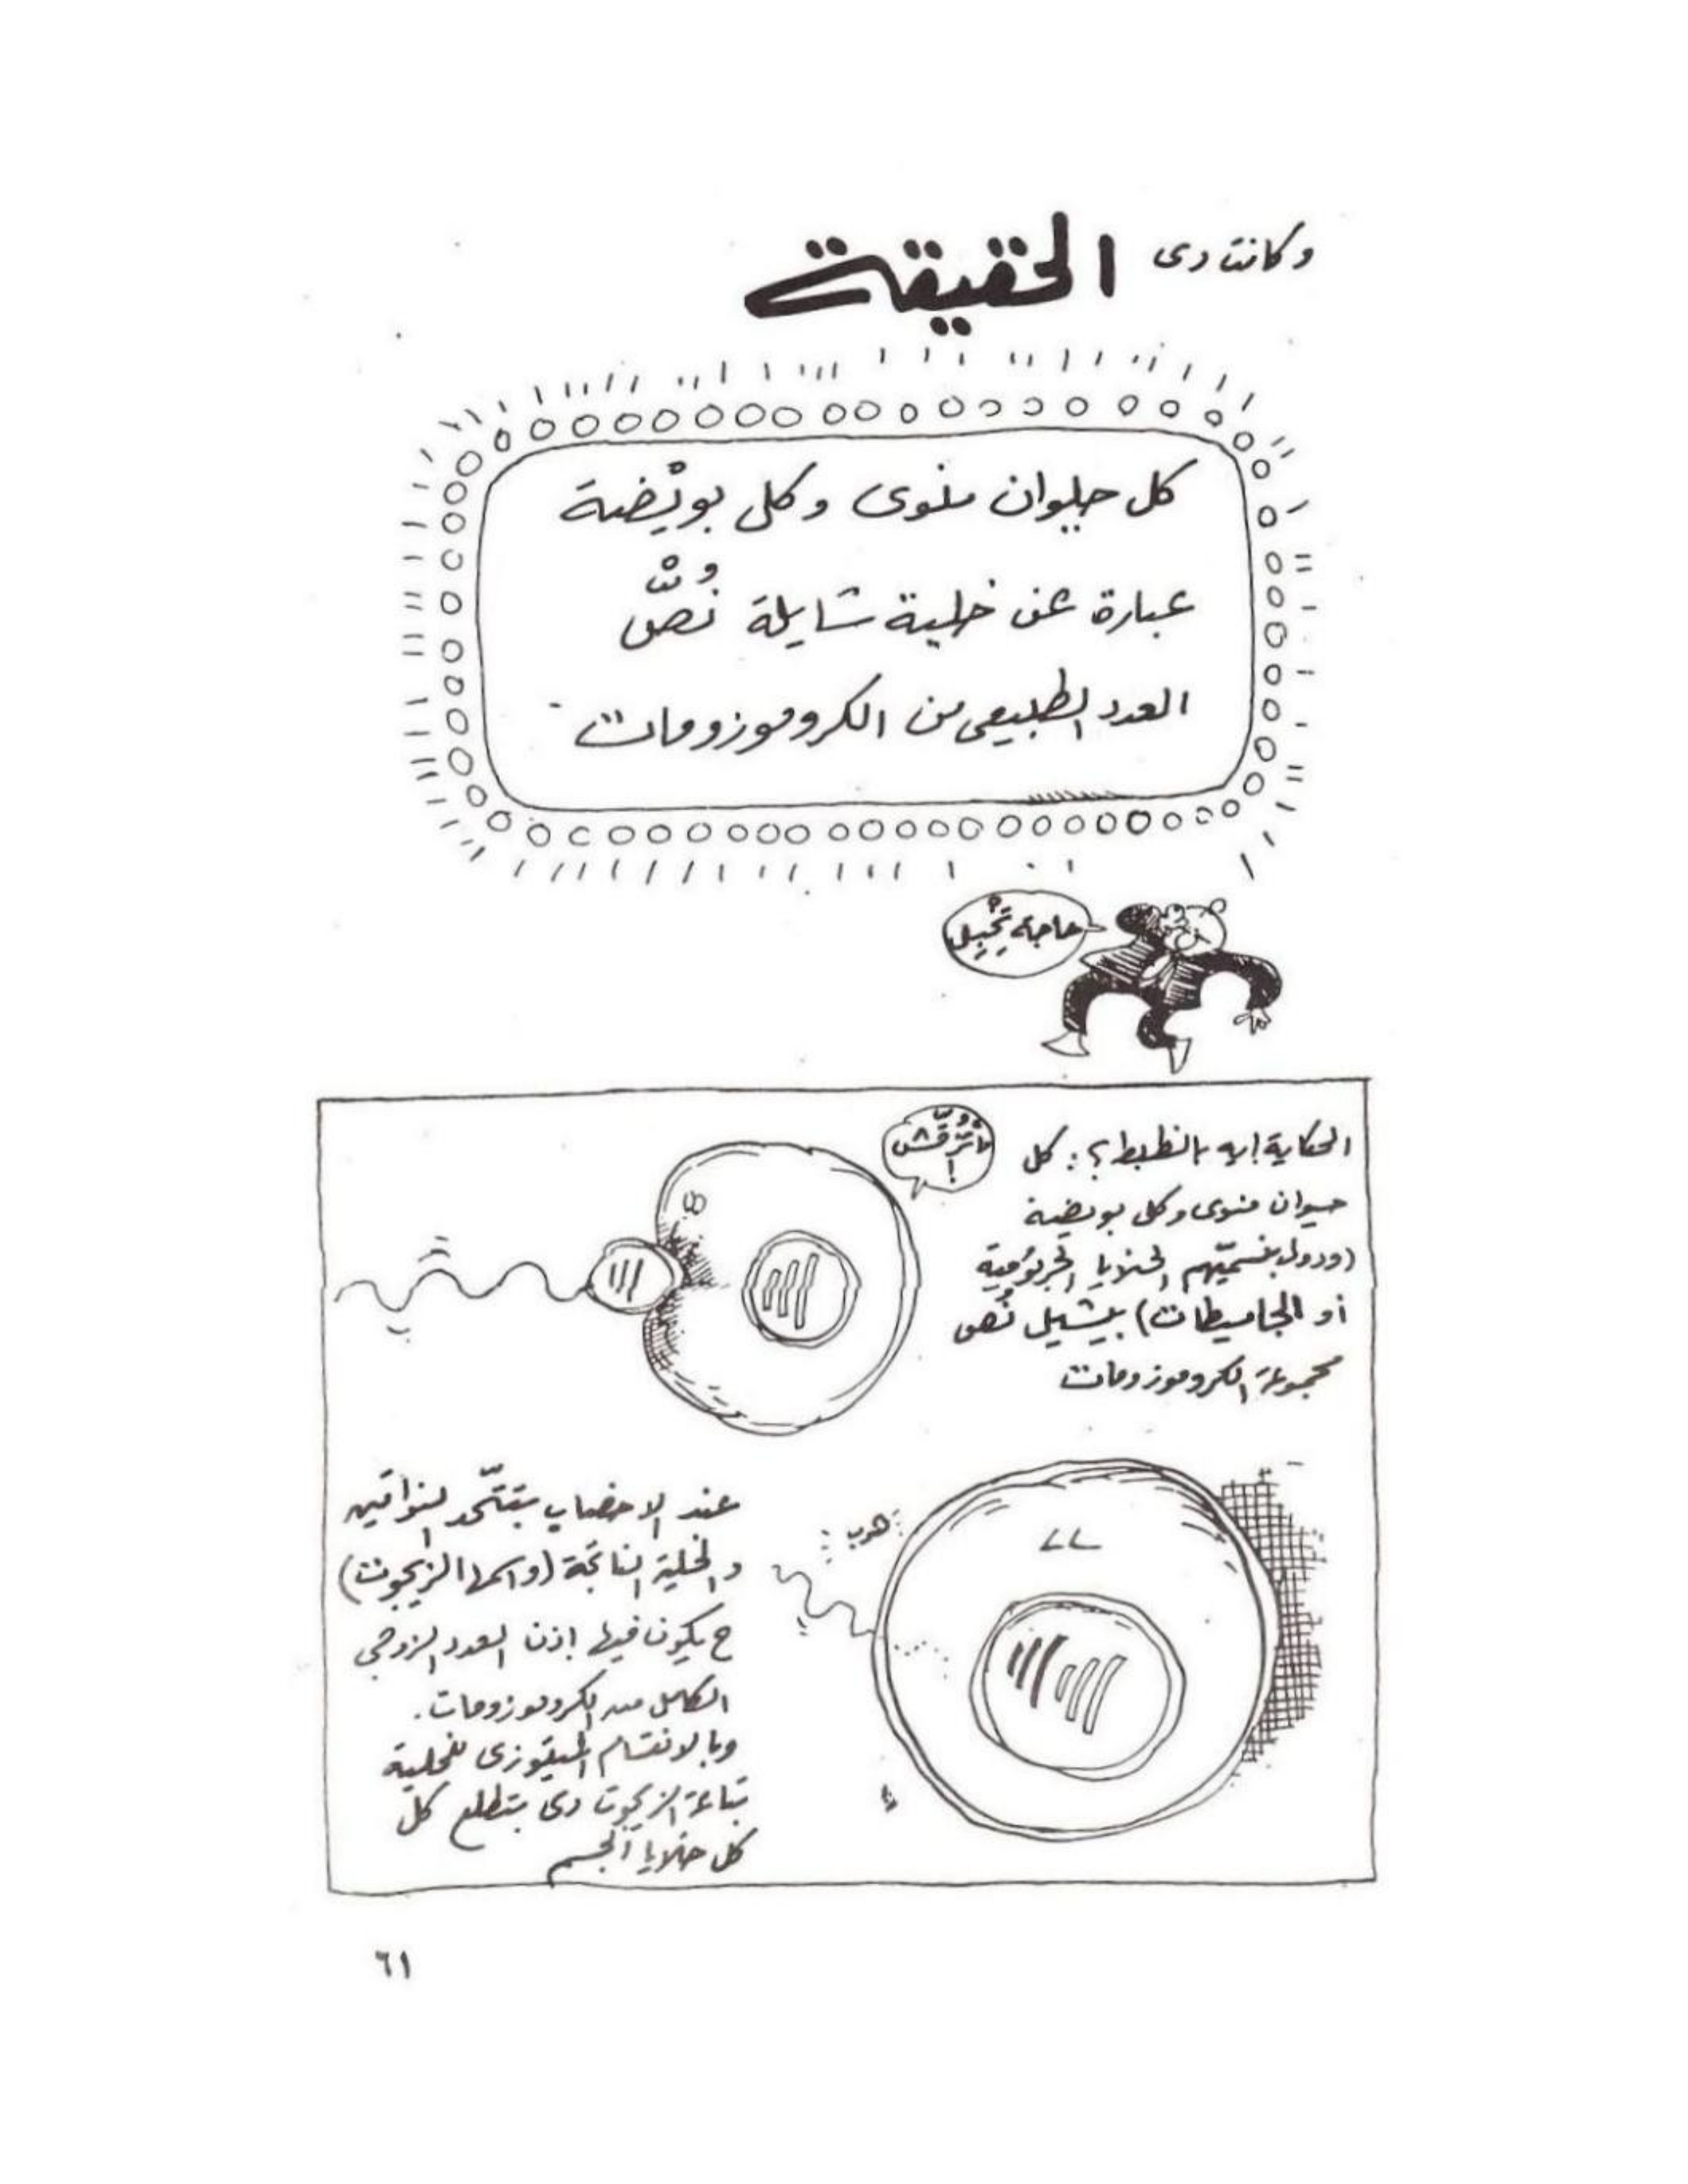 وكانت دى الحقيقة
كل حيوان منوى وكل بويْضة
عبارة عن خلية شايلة نُصّ
العدد الطبيعى من الكروموزومات
حاجة تِخْبِل
الحكاية إيه بالظبط؟: كل
حيوان منوى وكل بويضة
(ودول بنسمّيهم الخلايا الجرثومية
أو الجاميطات) بيشيل نُص
مجموعة الكروموزومات
عند الاخصاب بتتّحد النواتين
والخلية الناتجة (واسمها الزيجوت)
ح يكون فيها إذن العدد الزوجى
الكامل من الكروموزومات.
وبالانقسام الميتوزى للخلية
بتاعة الزيجوت دى بتطلع كل
كل خلايا الجسم
هوب
٦١